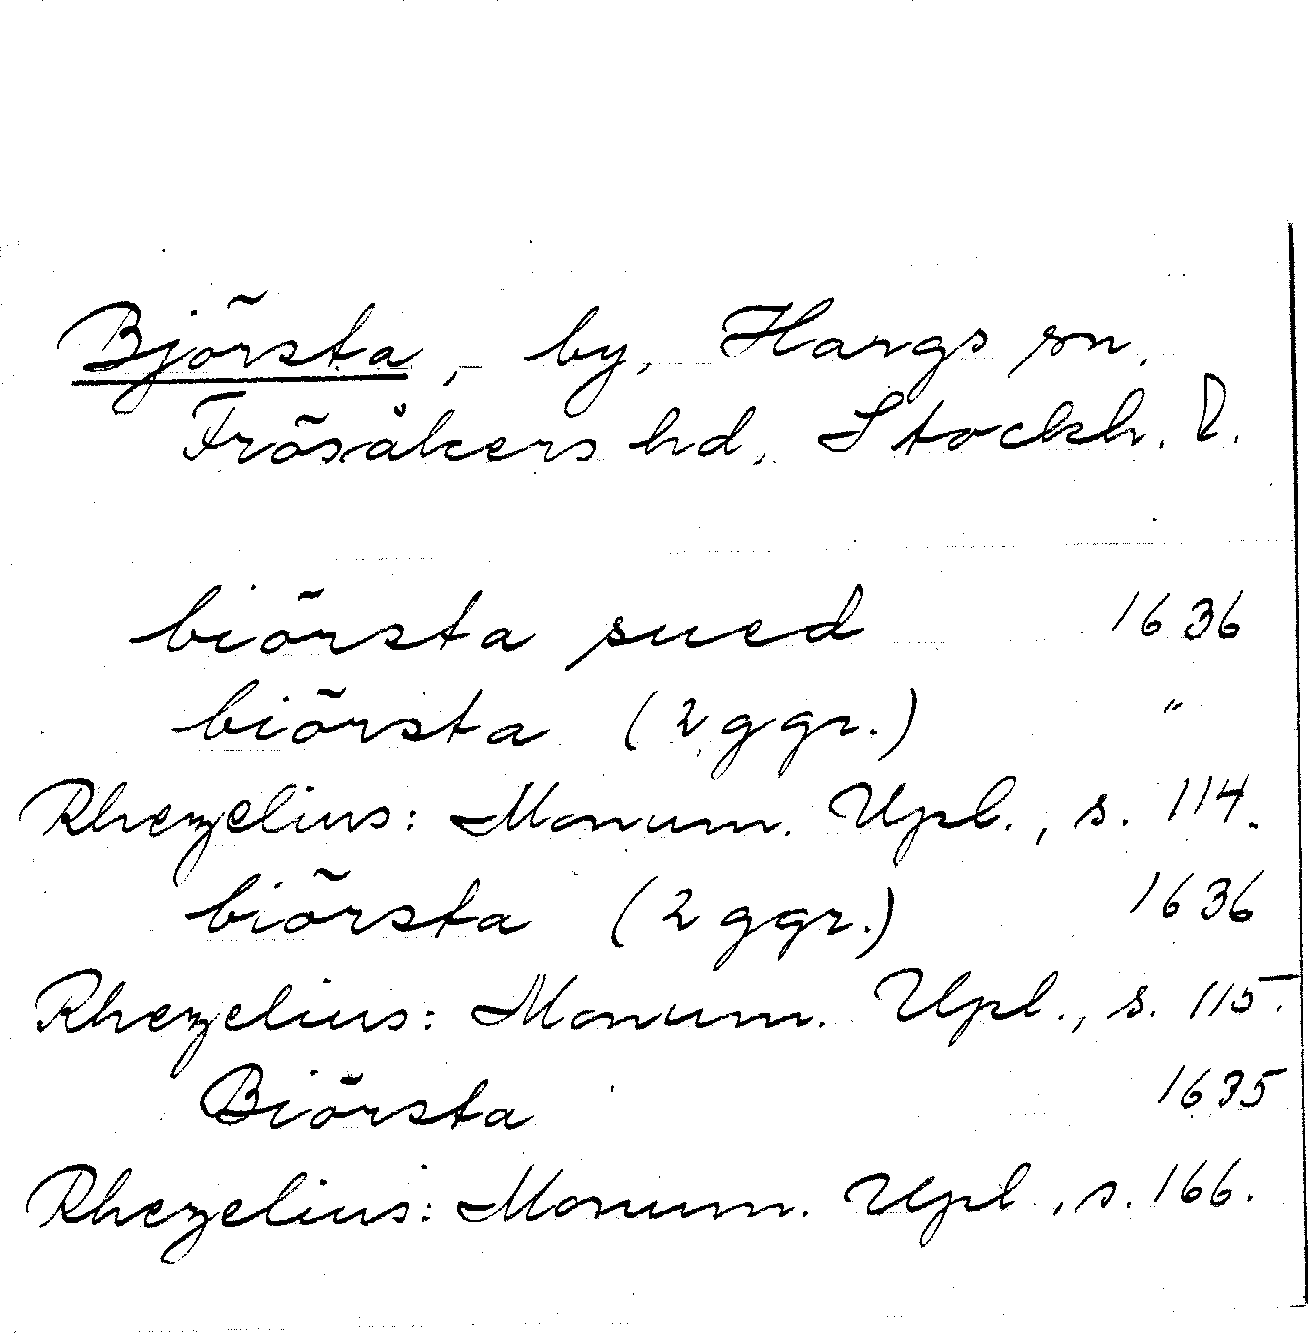 Björsta, by, Hargs sn,
Frösåkers hd, Stockh. l.
biörsta sued 1636
biörsta (2 ggr.) "
Rhezelius: Monum. Upl., s. 114.
biörsta (2 ggr.) 1636
Rhezelius: Monum. Upl., s. 115.
Biörsta 1635
Rhezelius: Monum. Upl., s. 166.